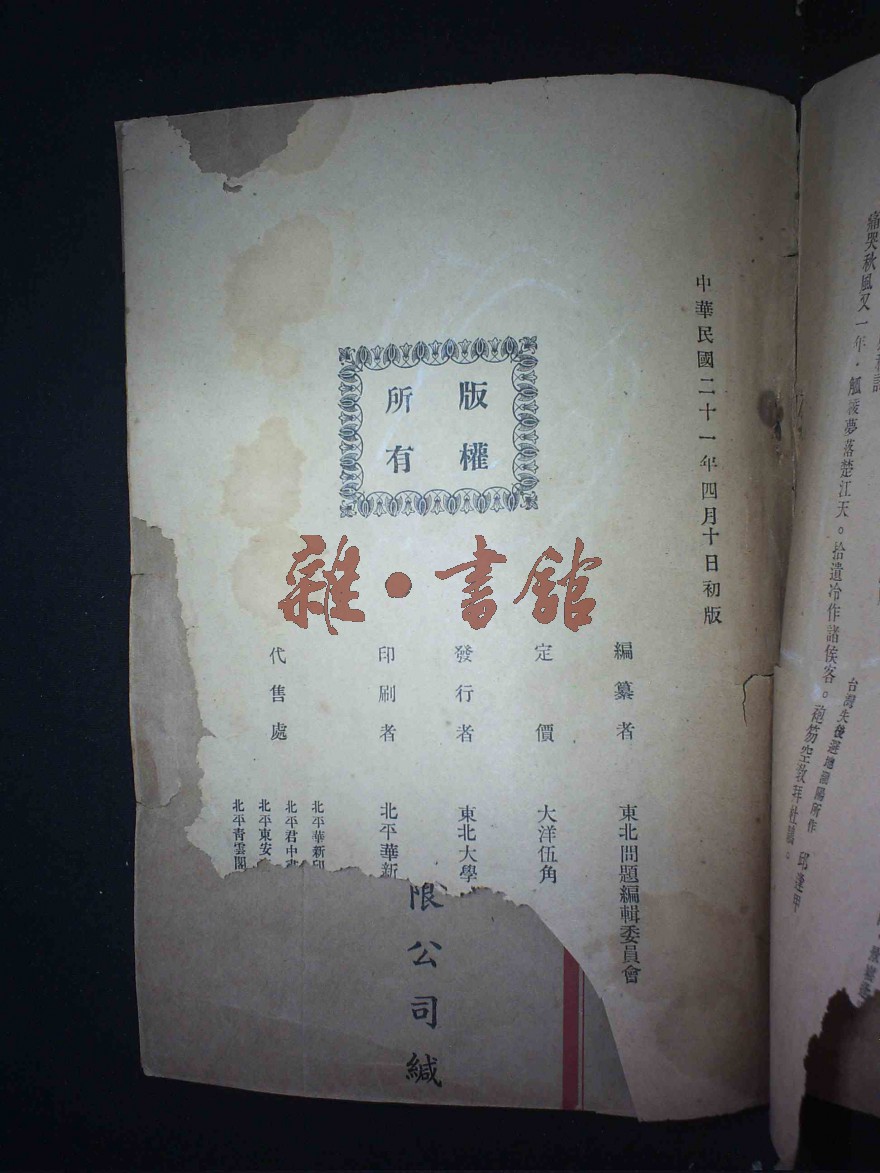 痛哭秋風又一年。觚棱夢落楚江天。拾遺冷作諸侯客。袍笏空教拜杜鵑。
台灣失後避地潮陽所作 邱逢甲
中華民國二十一年四月十日初版
版權
所有
雜·書館
編纂者 東北問題編輯委員會
定價 大洋伍角
發行者 東北大學
印刷者 北平華新
代售處
北平華新印
北平君中書
北平東安
北平青雲閣
限公司緘